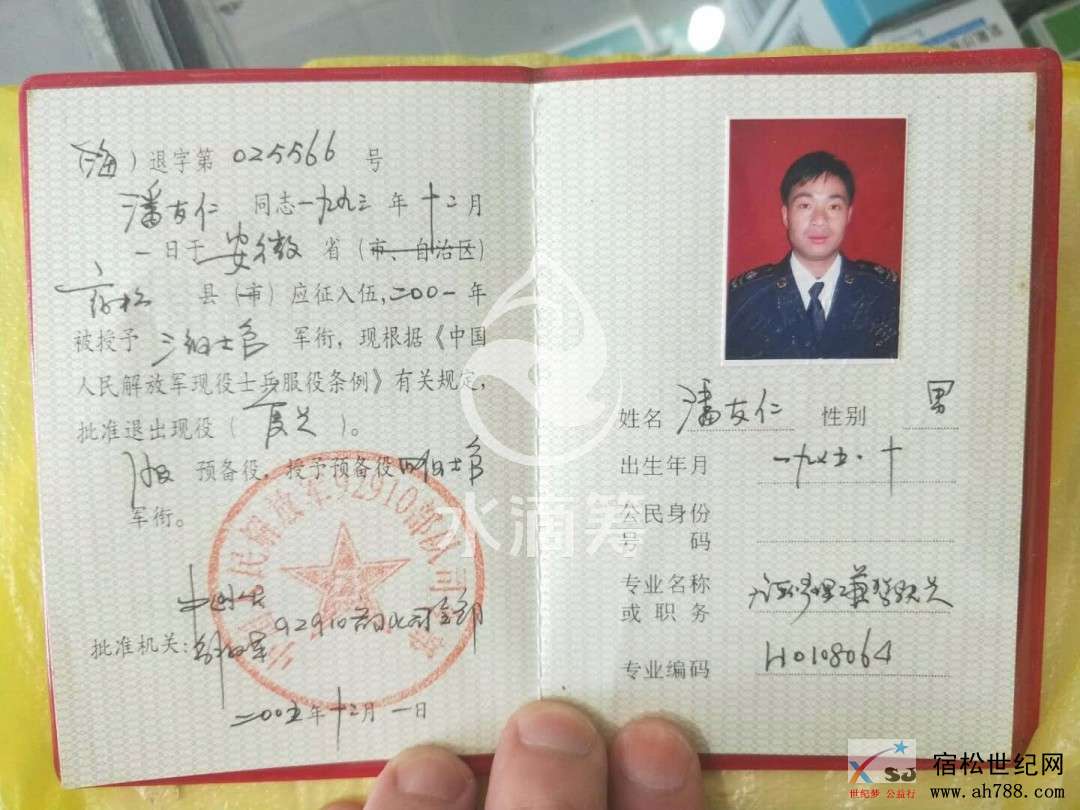 (海)退字第 025566 号
潘友仁 同志一九九三年十二月
一日于安徽省(市、自治区)
宿松县(市)应征入伍,二〇〇一年
被授予三级士官军衔,现根据《中国
人民解放军现役士兵服役条例》有关规定,
批准退出现役()。
服预备役,授予预备役四级士官
军衔。
批准机关:
92910部队司令部
二〇〇五年十二月一日
姓名 潘友仁 性别 男
出生年月 一九七五·十
公民身份
号码
专业名称
或职务
专业编码 H0108064
人民解放军92910部队司
水滴筹
XSJ
世纪梦 公益行
宿松世纪网
www.ah788.com